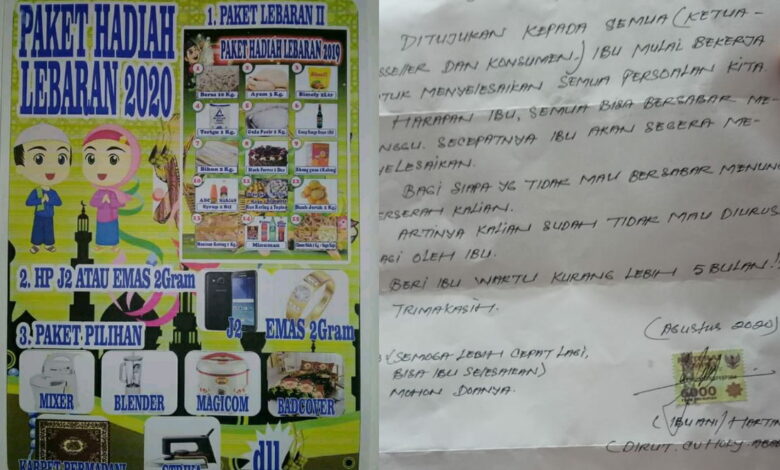 PAKET HADIAH
LEBARAN 2020
1. PAKET LEBARAN II
PAKET HADIAH LEBARAN 2019
1
2
3
Beras 10 Kg.
Ayam 3 Kg.
Bimoly 2Ltr
4
5
6
Terigu 2 Kg.
Gula Pasir 2 Kg.
7
8
9
Bihun 2 Kg.
10
11
12
ABC
MARJAN
Syrup 2 Btl
13
14
15
Minuman
2. HP J2 ATAU EMAS 2Gram
J2
EMAS 2Gram
3. PAKET PILIHAN
MIXER
BLENDER
MAGICOM
BADCOVER
KARPET PERMADANI
dll
DITUJUKAN KEPADA SEMUA (KETUA-
SSELLER DAN KONSUMEN.) IBU MULAI BEKERJA
TUK MENYELESAIKAN SEMUA PERSOALAN KITA
HARAPAN IBU, SEMUA BISA BERSABAR ME-
NGGU. SECEPATNYA IBU AKAN SEGERA ME-
YELESAIKAN.
BAGI SIAPA YG TIDAK MAU BERSABAR MENUN
ERSERAH KALIAN.
ARTINYA KALIAN SUDAH TIDAK MAU DIURUS
AGI OLEH IBU.
BERI IBU WAKTU KURANG LEBIH 5 BULAN.!
TRIMAKASIH.
(AGUSTUS 2020)
(SEMOGA LEBIH CEPAT LAGI,
BISA IBU SELESAIKAN)
MOHON DOANYA.
6000
(IBU ANI) HARTIN
(DIRUT.